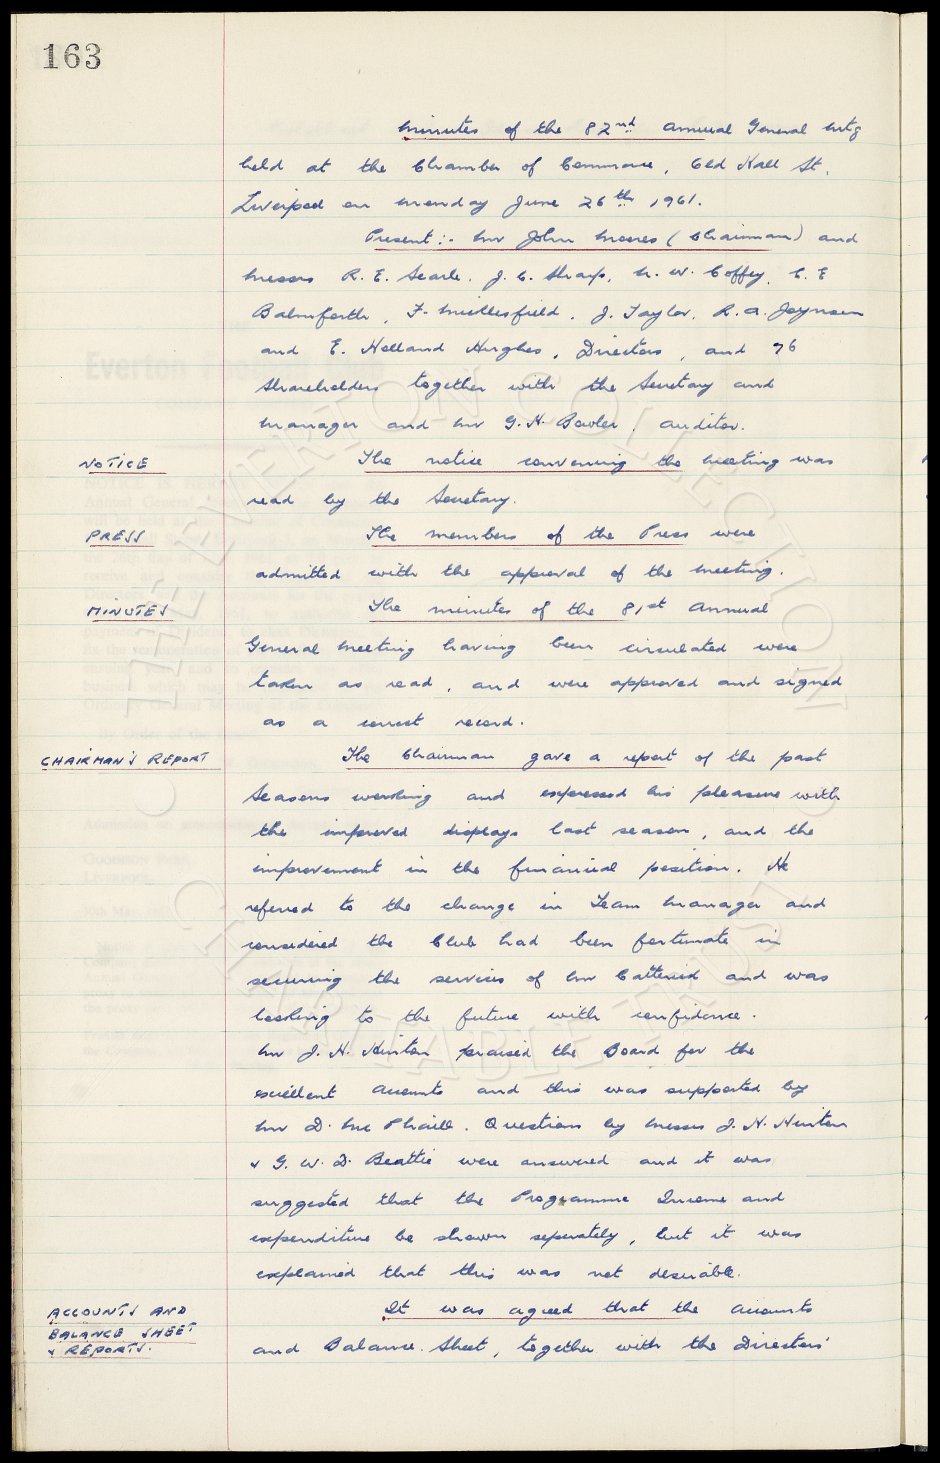 163
Minutes of the 82nd Annual General Mtg
held at the Chamber of Commerce, Old Hall St,
Liverpool on Monday June 26th 1961.
Present:- Mr John Moores (Chairman) and
Messrs R. E. Searle, J. C. Sharp, N. W. Coffey, C. E
Balmforth, F. Micklesfield, J. Taylor, R. A. Joynson
and E. Holland Hughes, Directors, and 76
Shareholders together with the Secretary and
Manager and Mr G. H. Bowler, Auditor.
NOTICE The notice convening the meeting was
read by the Secretary.
PRESS The members of the Press were
admitted with the approval of the meeting.
MINUTES The minutes of the 81st Annual
General Meeting having been circulated were
taken as read, and were approved and signed
as a correct record.
CHAIRMAN'S REPORT The Chairman gave a report of the past
Seasons working and expressed his pleasure with
the improved displays last season, and the
improvement in the financial position. He
referred to the change in Team Manager and
considered the Club had been fortunate in
securing the services of Mr Catterick and was
looking to the future with confidence.
Mr J. H. Hinton praised the Board for the
excellent accounts and this was supported by
Mr D. Mc Phaill. Questions by Messrs J. H. Hinton
& G. W. D. Beattie were answered and it was
suggested that the Programme Income and
expenditure be shown seperately, but it was
explained that this was not desirable.
ACCOUNTS AND
BALANCE SHEET
& REPORTS.
It was agreed that the accounts
and Balance Sheet, together with the Directors'
THE EVERTON COLLECTION
CHARITABLE TRUST
Everton Football Club